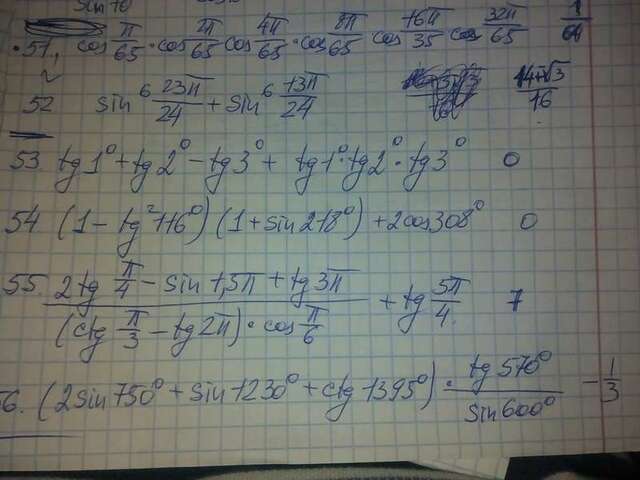 sin 10
51, cos π/65 · cos 2π/65 cos 4π/65 · cos 8π/65 cos 16π/35 cos 32π/65 1/64
52 sin⁶ 23π/24 + sin⁶ 13π/24 14-√3/16
53 tg1° + tg2° - tg3° + tg1° · tg2° · tg3° 0
54 (1 - tg²116°)(1 + sin218°) + 2cos308° 0
55. 2tg π/4 - sin1,5π + tg3π / (ctg π/3 - tg2π) · cos π/6 + tg 5π/4. 7
6. (2sin750° + sin1230° + ctg1395°) · tg570°/sin600° - 1/3